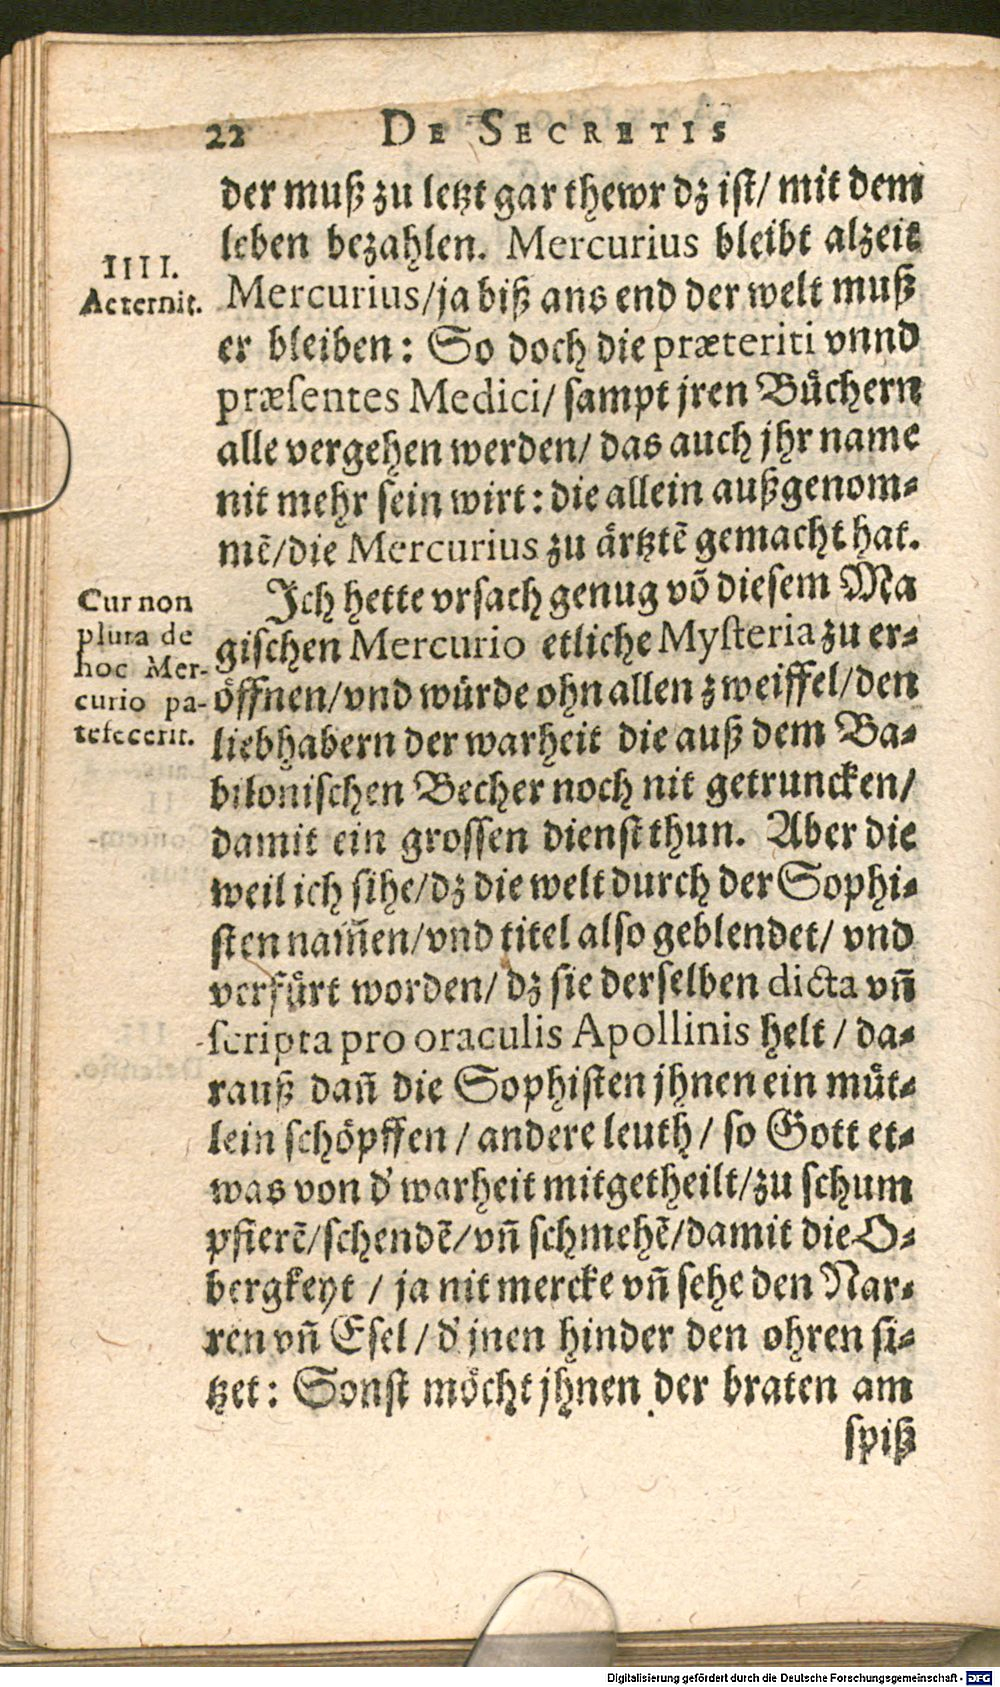 22 DE SECRETIS
der muß zu letzt gar thewr dz ist/ mit dem
leben bezahlen. Mercurius bleibt alzeit
IIII.
Aeternit.
Mercurius/ja biß ans end der welt muß
er bleiben: So doch die præteriti vnnd
præsentes Medici/ sampt jren Bůchern
alle vergehen werden/ das auch jhr name
nit mehr sein wirt: die allein außgenom-
mẽ/die Mercurius zu ärtztẽ gemacht hat.
Cur non
plura de
hoc Mer-
curio pa-
tefecerit.
Ich hette vrsach genug võ diesem Ma
gischen Mercurio etliche Mysteria zu er-
öffnen/vnd würde ohn allen zweiffel/den
liebhabern der warheit die auß dem Ba-
bilonischen Becher noch nit getruncken/
damit ein grossen dienst thun. Aber die
weil ich sihe/dz die welt durch der Sophi-
sten nam̃en/vnd titel also geblendet/ vnd
verfůrt worden/ dz sie derselben dicta vñ
scripta pro oraculis Apollinis helt / da-
rauß dañ die Sophisten jhnen ein můt-
lein schöpffen / andere leuth / so Gott et-
was von d' warheit mitgetheilt/zu schum
pfierẽ/schendẽ/vñ schmehẽ/damit die O-
bergkeyt / ja nit mercke vñ sehe den Nar-
ren vñ Esel / d' jnen hinder den ohren si-
tzet: Sonst möcht jhnen der braten am
spiß
Digitalisierung gefördert durch die Deutsche Forschungsgemeinschaft - DFG